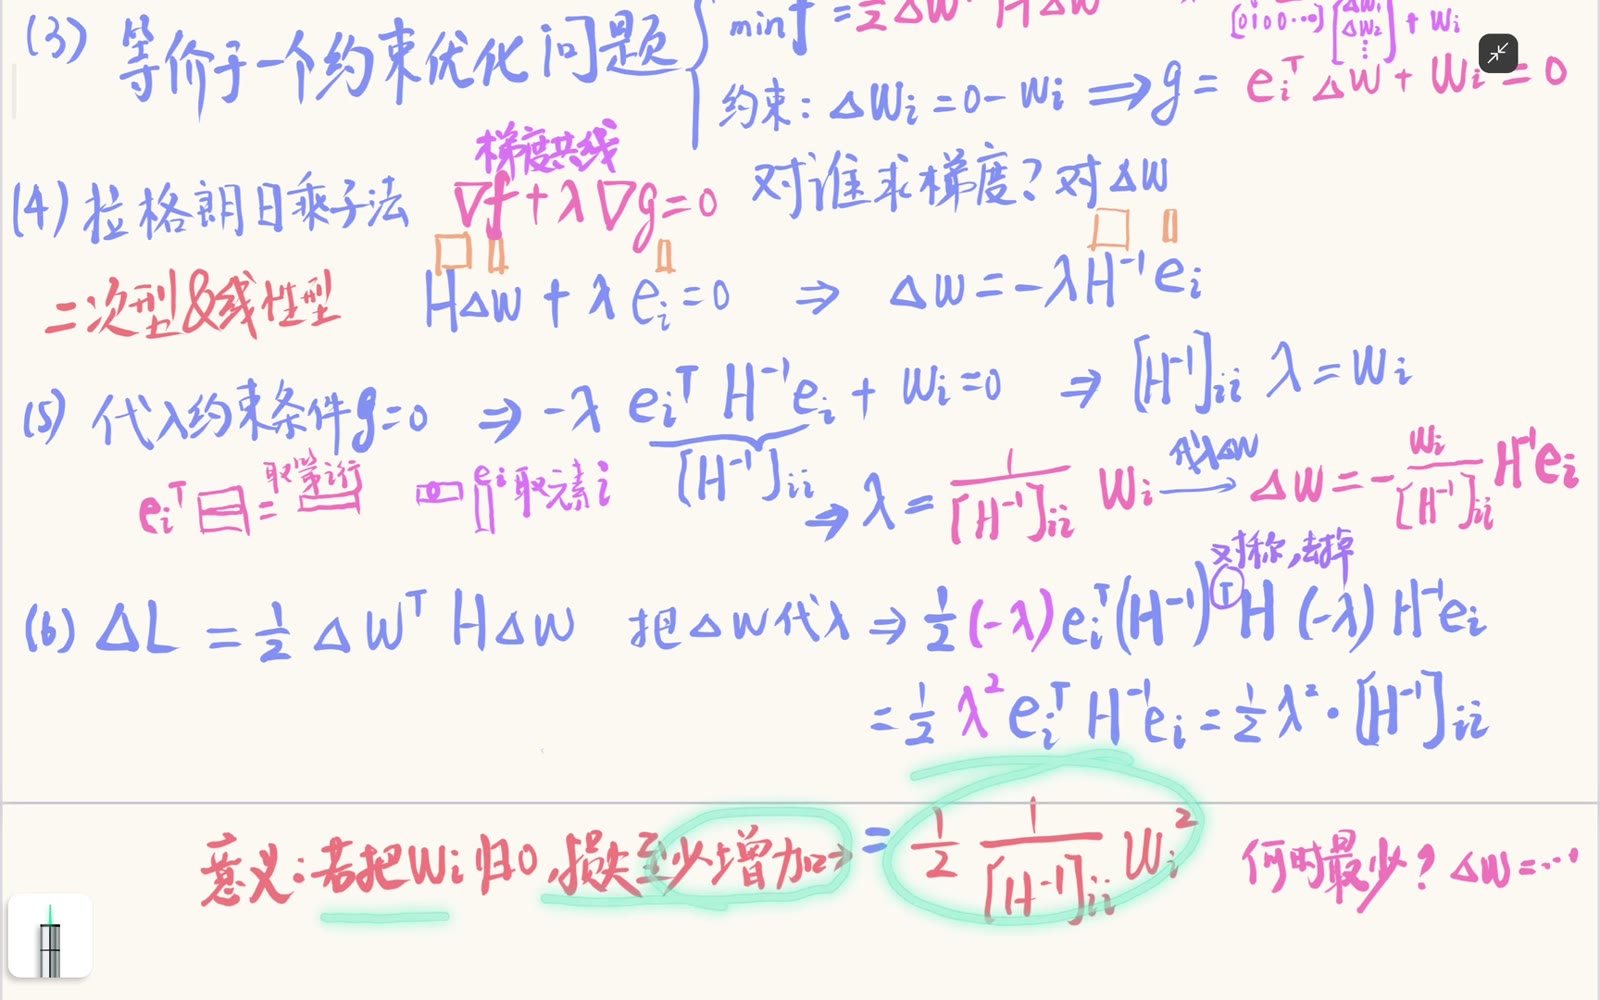 (3) 等价于一个约束优化问题 { min f = ½ ΔW^T H ΔW
[0100…] [ΔW₁ ΔW₂ ⋮] + Wi
约束: ΔWi = 0 - Wi ⇒ g = ei^T ΔW + Wi = 0
梯度共线
(4) 拉格朗日乘子法 ∇f + λ∇g = 0 对谁求梯度? 对ΔW
二次型&线性型 HΔW + λei = 0 ⇒ ΔW = -λH⁻¹ei
(5) 代入约束条件g=0 ⇒ -λ ei^T H⁻¹ei + Wi = 0 ⇒ [H⁻¹]ii λ = Wi
[H⁻¹]ii
ei^T = 取第i行 ei 取元素i
⇒ λ = 1/[H⁻¹]ii Wi 代入ΔW → ΔW = - Wi/[H⁻¹]ii H⁻¹ei
对称,去掉
(6) ΔL = ½ ΔW^T HΔW 把ΔW代入 ⇒ ½ (-λ) ei^T (H⁻¹)^T H (-λ) H⁻¹ei
= ½ λ² ei^T H⁻¹ei = ½ λ² · [H⁻¹]ii
意义: 若把Wi归0,损失至少增加 → = ½ 1/[H⁻¹]ii Wi² 何时最少? ΔW = …